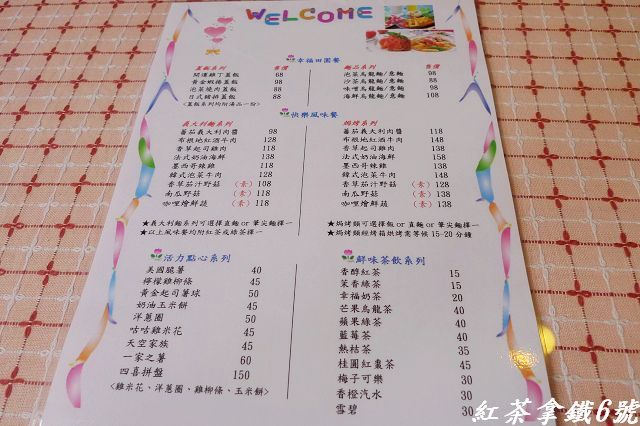 WELCOME
幸福田園餐
蓋飯系列 售價
開運雞丁蓋飯 68
黃金蝦捲蓋飯 98
泡菜燒肉蓋飯 88
日式豬排蓋飯 88
<蓋飯系列均附湯品一份>
麵品系列 售價
泡菜烏龍麵/意麵 98
沙茶烏龍麵/意麵 88
味噌烏龍麵/意麵 88
海鮮烏龍麵/意麵 108
快樂風味餐
義大利麵系列
蕃茄義大利肉醬 98
布根地紅酒牛肉 128
香草起司雞肉 128
法式奶油海鮮 138
墨西哥辣雞 118
韓式泡菜牛肉 128
香草茄汁野菇 (素) 108
南瓜野菇 (素) 118
咖哩燴鮮蔬 (素) 118
焗烤系列
蕃茄義大利肉醬 118
布根地紅酒牛肉 148
香草起司雞肉 148
法式奶油海鮮 158
墨西哥辣雞 138
韓式泡菜牛肉 148
香草茄汁野菇 (素) 128
南瓜野菇 (素) 138
咖哩燴鮮蔬 (素) 138
★義大利麵系列可選擇直麵or筆尖麵擇一
★以上風味餐均附紅茶或綠茶擇一
★焗烤類可選擇飯or直麵or筆尖麵擇一
★焗烤類經烤箱烘烤需等候15-20分鐘
活力點心系列
美國脆薯 40
檸檬雞柳條 45
黃金起司薯球 50
奶油玉米餅 45
洋蔥圈 50
咕咕雞米花 45
天空家族 45
一家之薯 60
四喜拼盤 150
<雞米花、洋蔥圈、雞柳條、玉米餅>
鮮味茶飲系列
香醇紅茶 15
茉香綠茶 15
幸福奶茶 20
芒果烏龍茶 40
蘋果綠茶 40
藍莓茶 40
熱桔茶 35
桂圓紅棗茶 45
梅子可樂 30
香橙汽水 30
雪碧 30
紅茶拿鐵6號